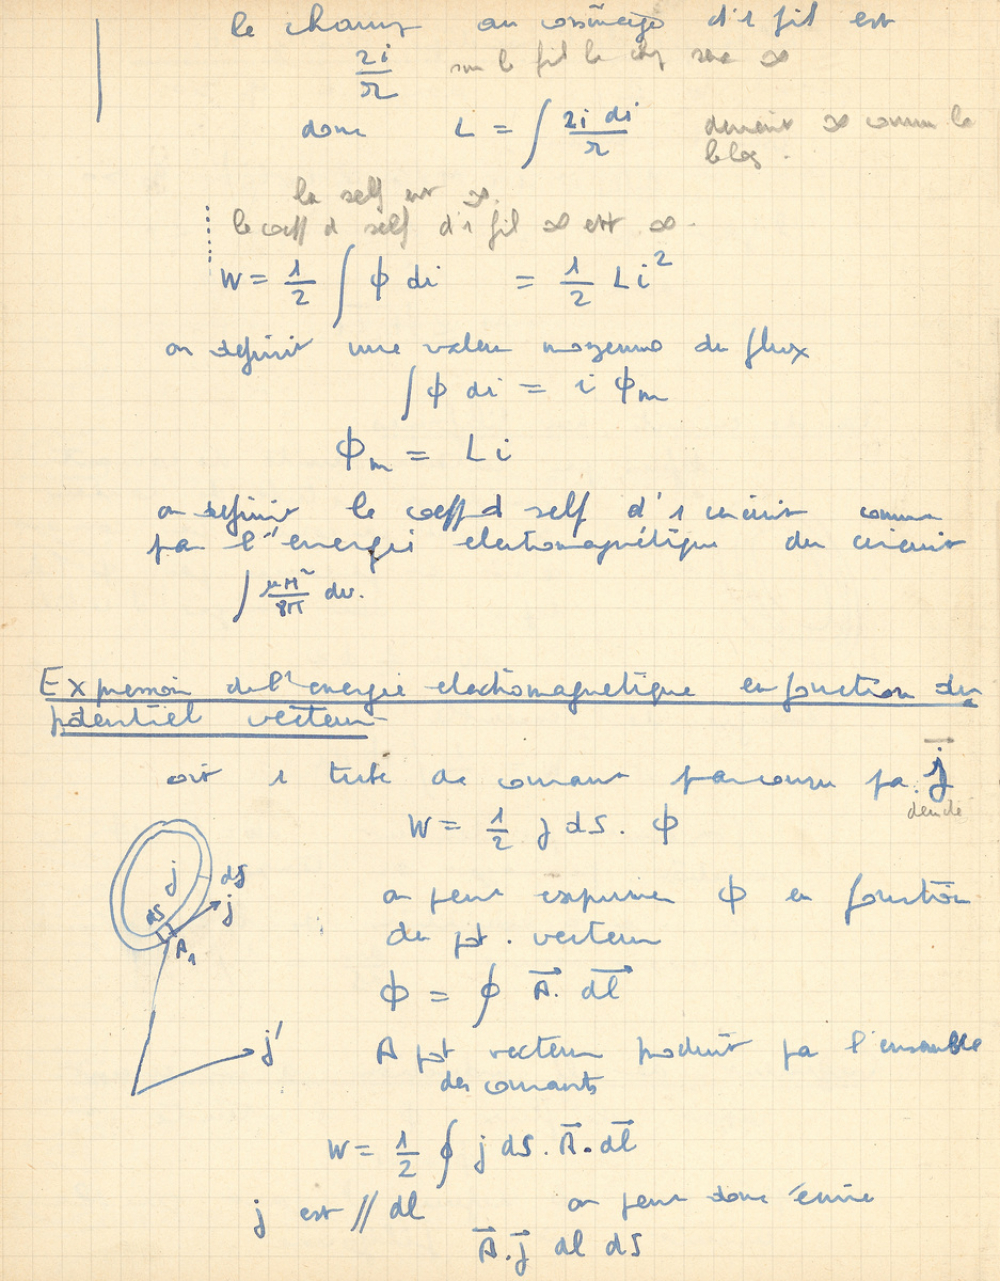 le champ au voisinage d'1 fil est
2i/r sur le fil le chp sera ∞
donc L = ∫ 2i di / r devient ∞ comme le
la self est ∞.
le coeff d self d'1 fil ∞ est ∞.
W = 1/2 ∫ ϕ di = 1/2 Li²
on definit une valeur moyenne du flux
∫ ϕ di = i ϕm
ϕm = Li
on definit le coeff d self d'1 circuit comme
par l'énergie electromagnétique du circuit
∫ μH²/8π dv.
Expression de l'energie electromagnetique en fonction du
potentiel vecteur
soit 1 tube de courant parcouru par j⃗
densité
W = 1/2 j dS. ϕ
j dS
dS j
A₁
on peut exprimer ϕ en fonction
du pt. vecteur
ϕ = ∮ A⃗. dl⃗
j'
A pt vecteur produit par l'ensemble
des courants
W = 1/2 ∮ j dS. A⃗. dl⃗
j est // dl on peut donc écrire
A⃗.j⃗ dl dS